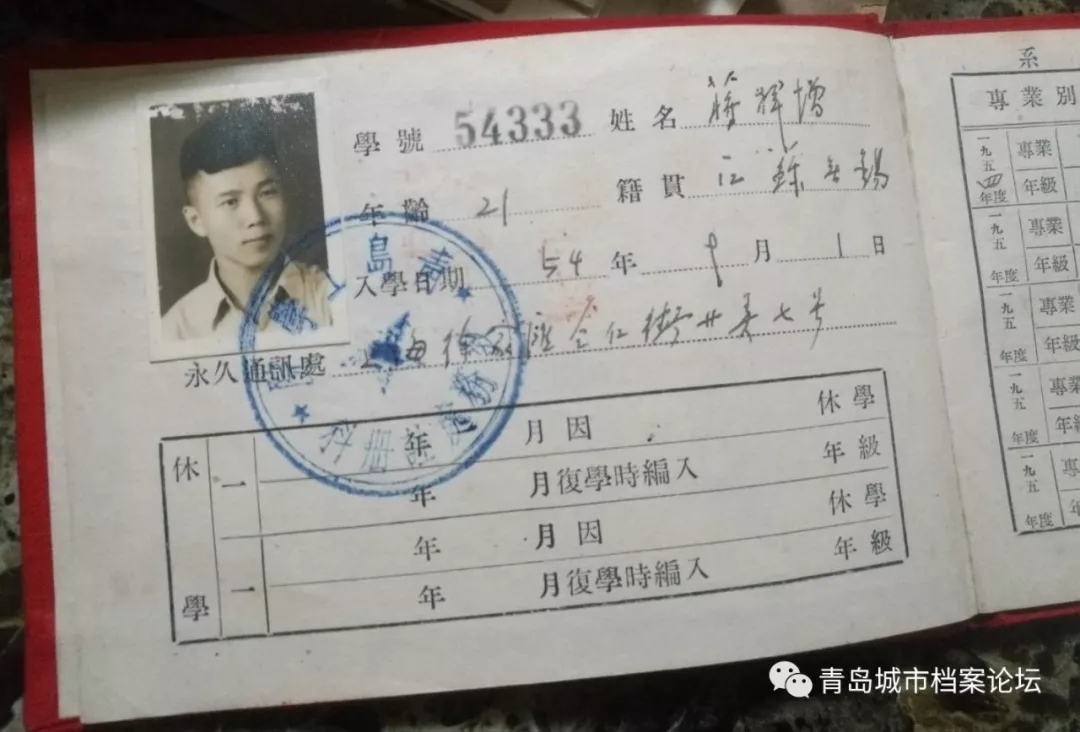 學號 54333 姓名 蔣輝增
年齡 21 籍貫 江蘇無錫
入學日期 54年9月1日
永久通訊處 上海徐家匯 仁街廿弄七号
休學
一 年 月因 休學
年 月復學時編入 年級
一 年 月因 休學
年 月復學時編入 年級
青島工學院
教務處註冊科
系
專業別
一九五四年度 專業
年級
一九五 年度 專業
年級
一九五 年度 專業
年級
一九五 年度 專業
年級
一九五 年度
青岛城市档案论坛